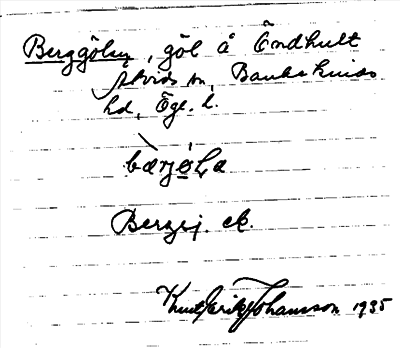 Berggölen, göl å Öndhult
Askeryds sn, Bankekinds
hd, Ögl. l.
bærjøLa
Bergsj. ek.
Knut Erik Johansson 1935